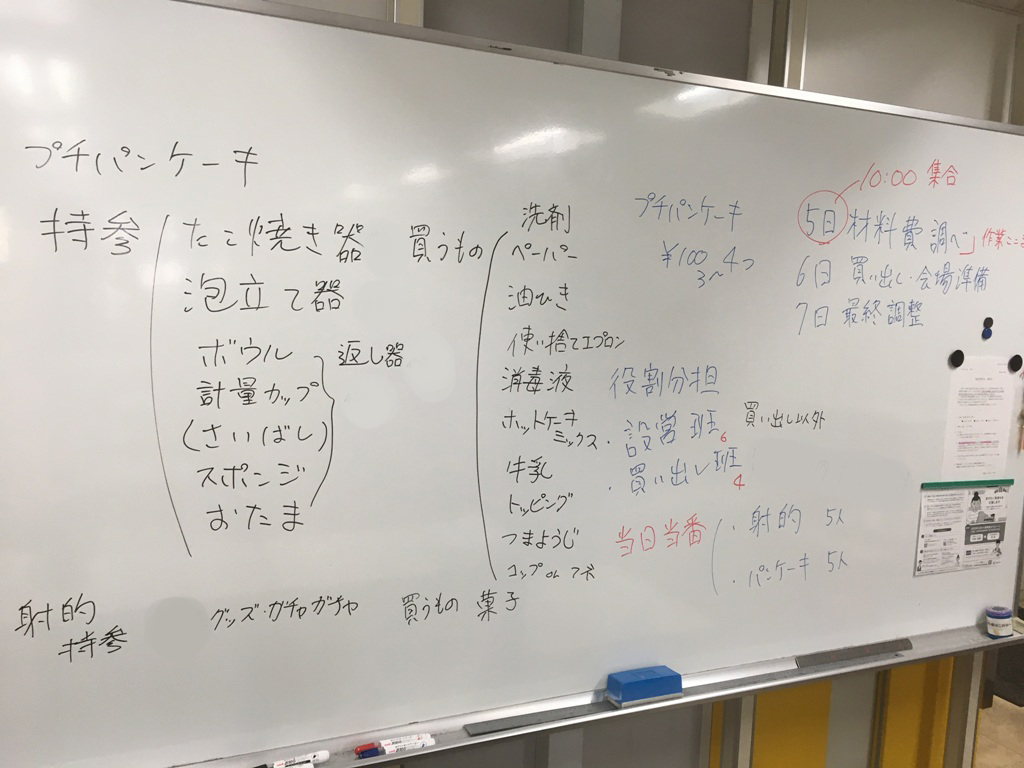 プチパンケーキ
持参
たこ焼き器
泡立て器
ボウル
計量カップ
(さいばし)
スポンジ
おたま
返し器
買うもの
洗剤
ペーパー
油ひき
使い捨てエプロン
消毒液
ホットケーキ
ミックス
牛乳
トッピング
つまようじ
コップ or
プチパンケーキ
¥100 4つ
3〜
10:00 集合
5日 材料費調べ
6日 買い出し・会場準備
7日 最終調整
役割分担
・設営班 6
買い出し以外
・買い出し班 4
当日当番
・射的 5人
・パンケーキ 5人
射的
持参
グッズ・ガチャガチャ
買うもの 菓子